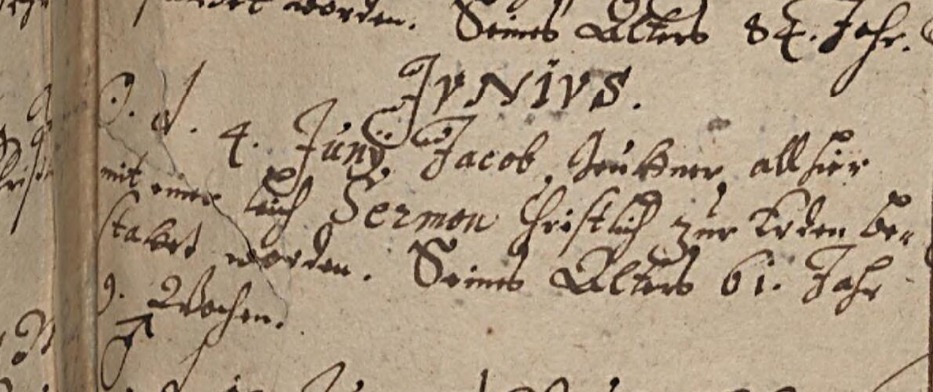 worden. Seines Alters 84. Jahr.
JVNIVS.
D. 1. 4. Junÿ Jacob, allhier
mit einer leich Sermon Christlich zur Erden be-
stattet worden. Seines Alters 61. Jahr
9. Wochen.